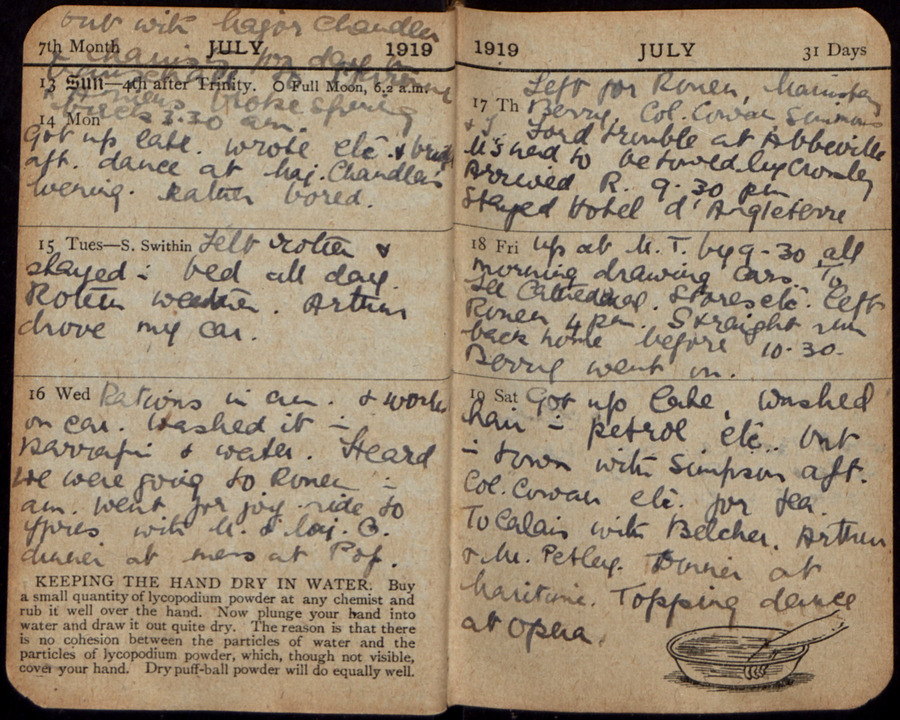 out with Major Chandler
7th Month JULY 1919
13 Sun—4th after Trinity. O Full Moon, 6.2 a.m.
broke spring
back 3.30 am.
14 Mon
Got up late. wrote etc &
aft. dance at Maj. Chandler's
evening. Rather bored.
15 Tues—S. Swithin Felt rotten &
stayed in bed all day.
Rotten weather. Arthur
drove my car.
16 Wed Rations in am. & work
on car. Washed it in
parrafin & water. Heard
we were going to Rouen in
am. Went for joy-ride to
Ypres with M. & Maj. C.
dinner at mess at Pop.
KEEPING THE HAND DRY IN WATER. Buy
a small quantity of lycopodium powder at any chemist and
rub it well over the hand. Now plunge your hand into
water and draw it out quite dry. The reason is that there
is no cohesion between the particles of water and the
particles of lycopodium powder, which, though not visible,
cover your hand. Dry puff-ball powder will do equally well.
1919 JULY 31 Days
Left for Rouen,
17 Th Berry, Col. Cowan Simmons
& I. Ford trouble at Abbeville
Us had to be towed by Crossley
Arrived R. 9.30 pm
Stayed Hotel d'Angleterre
18 Fri Up at M.T. by 9-30 all
morning drawing cars. To
see Cathedral. Stores etc. Left
Rouen 4 pm. Straight run
back home before 10-30.
Berry went on.
19 Sat Got up late, washed
hair in petrol etc. out
in town with Simpson aft.
Col. Cowan etc. for tea.
To Calais with Belcher, Arthur
& Mr. Petley. Dinner at
Maritime. Topping dance
at Opera.